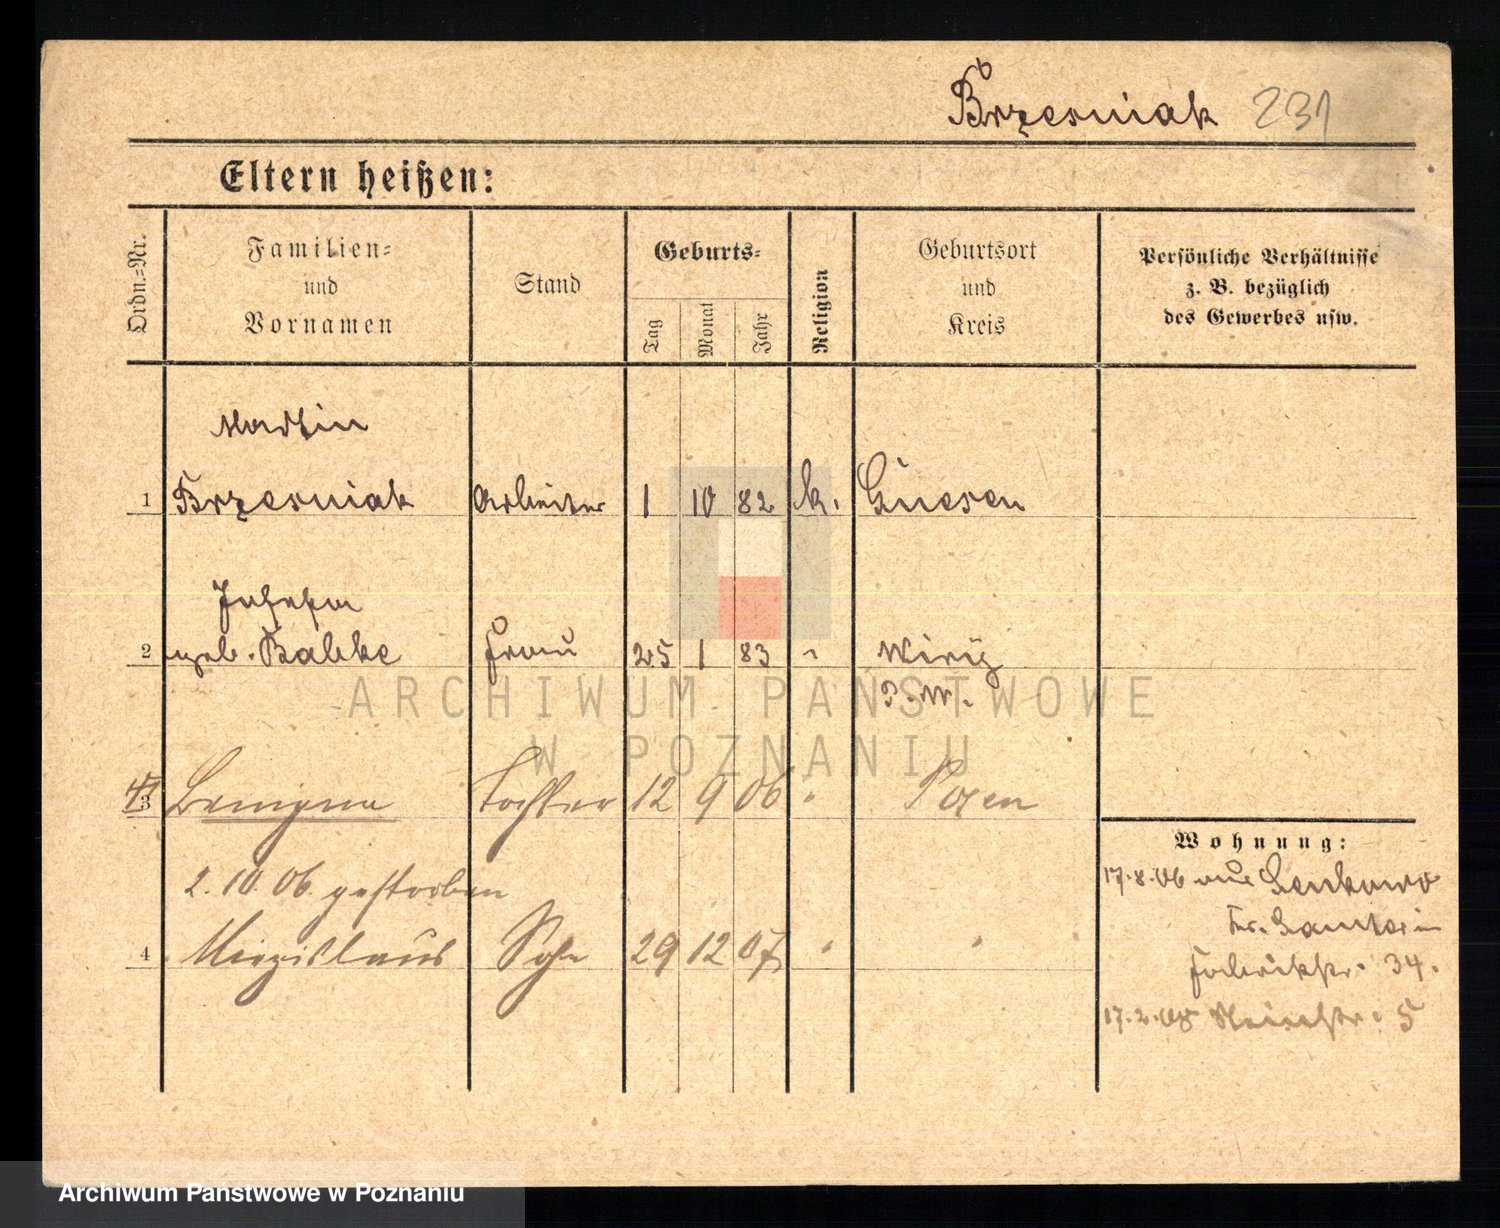 Brzesniak 231
Eltern heißen:
Ordn.=Nr.
Familien=
und
Vornamen
Stand
Geburts=
Tag
Monat
Jahr
Religion
Geburtsort
und
Kreis
Persönliche Verhältnisse
z. B. bezüglich
des Gewerbes usw.
Martin
1 Brzesniak Arbeiter 1 10 82 k. Gnesen
Josefa
2 geb. Babke Frau 25 1 83 "
P. W.
3 Benigna Tochter 12 9 06 " Posen
2. 10. 06. gestorben
4 Miezislaus Sohn 29 12 07 " "
Wohnung:
17.8.06 aus
Kr. Samter in
Fabrikstr. 34.
17.2.08 5
ARCHIWUM PAŃSTWOWE
W POZNANIU
Archiwum Państwowe w Poznaniu